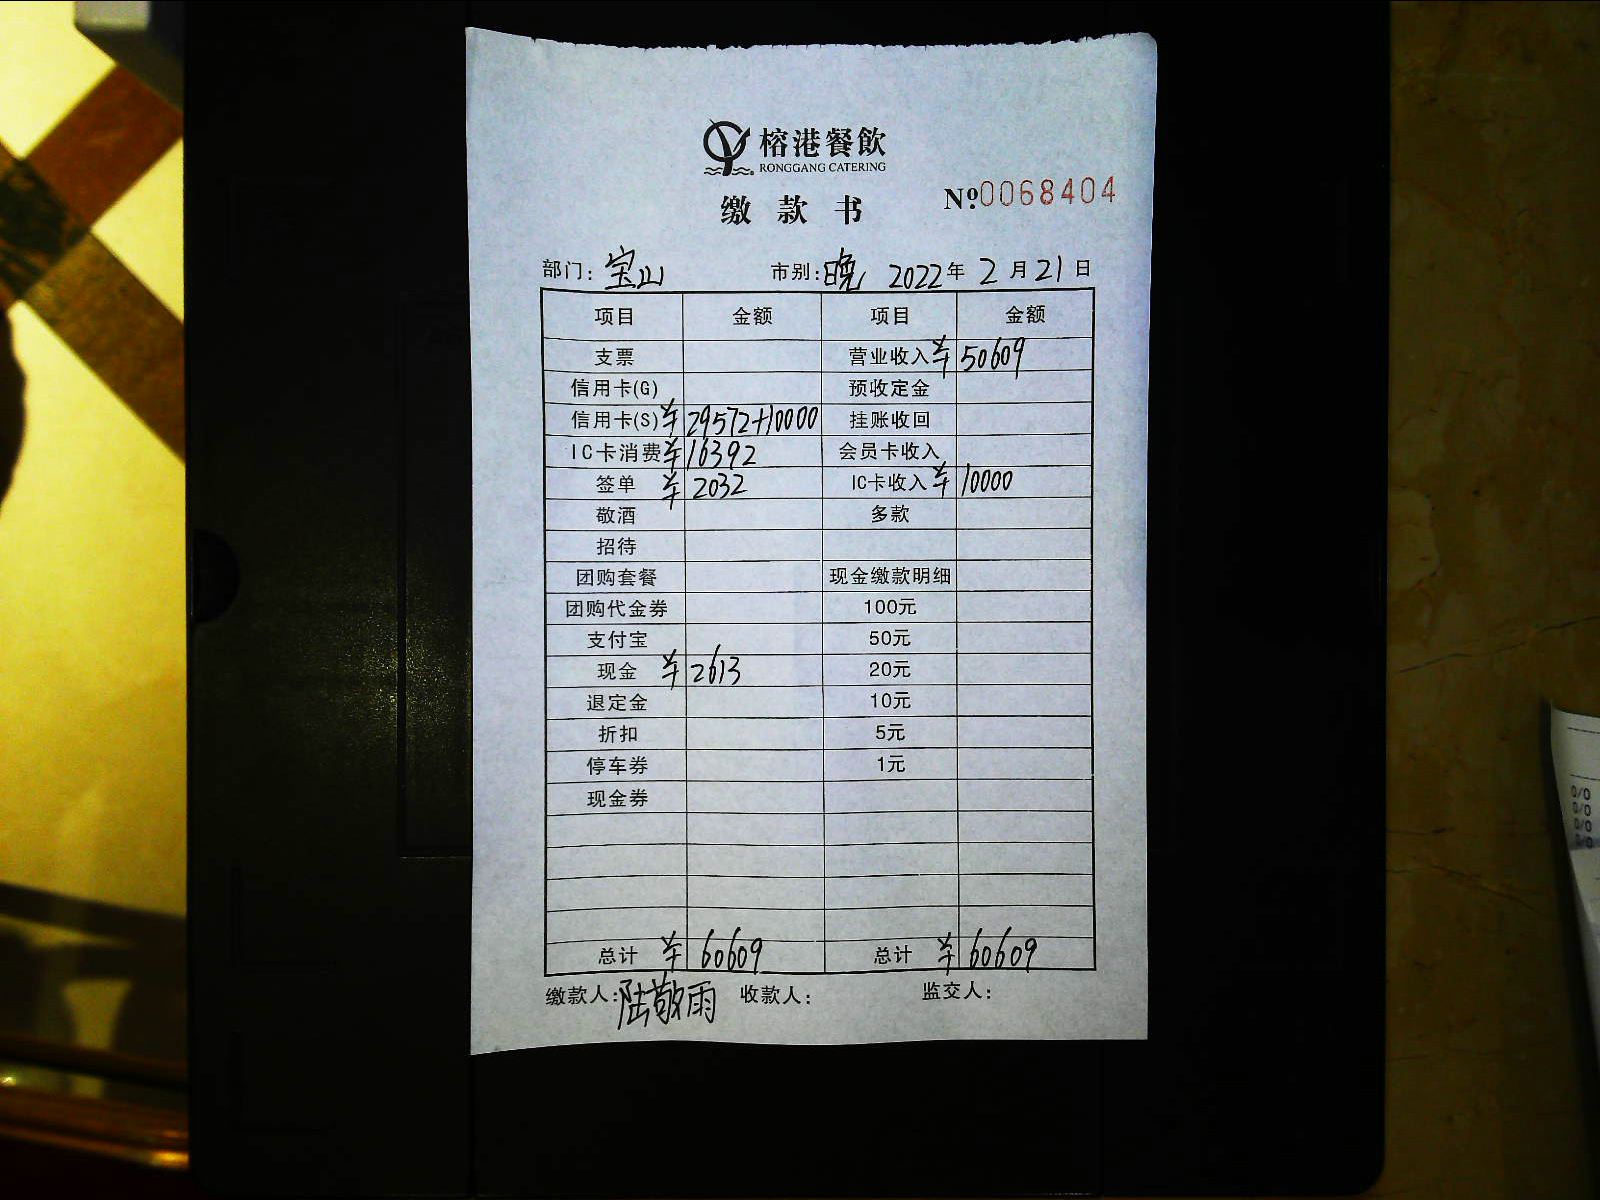 榕港餐飲
RONGGANG CATERING
缴款书 №0068404
部门：宝山 市别：晚 2022年2月21日
项目 金额 项目 金额
支票 营业收入 ¥50609
信用卡(G) 预收定金
信用卡(S) ¥29572+10000 挂账收回
IC卡消费 ¥16392 会员卡收入
签单 ¥2032 IC卡收入 ¥10000
敬酒 多款
招待
团购套餐 现金缴款明细
团购代金券 100元
支付宝 50元
现金 ¥2613 20元
退定金 10元
折扣 5元
停车券 1元
现金券
总计 ¥60609 总计 ¥60609
缴款人：陆敬雨 收款人： 监交人：
0/0
0/0
0/0
0/0